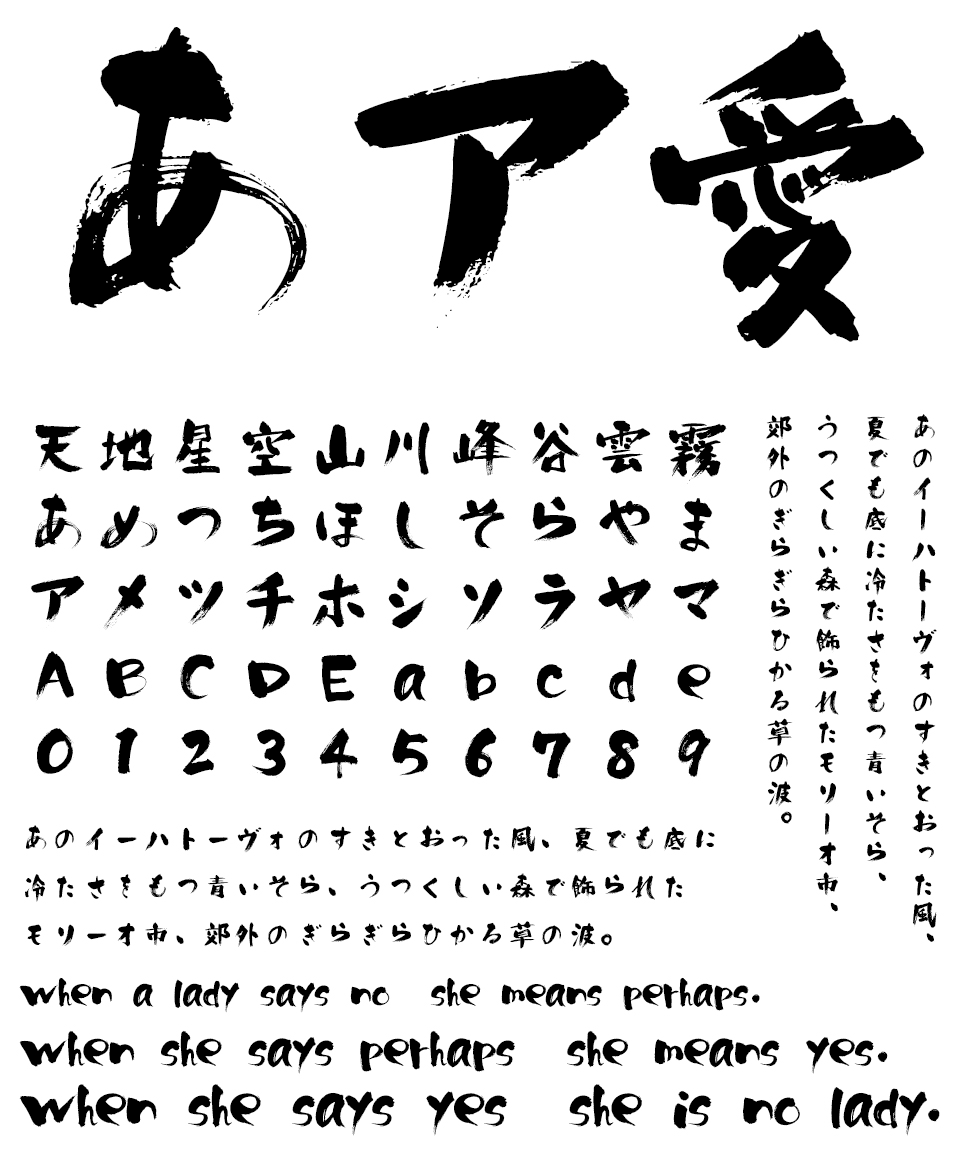 あア愛
天地星空山川峰谷雲霧
あめつちほしそらやま
アメツチホシソラヤマ
ABCDEabcde
0123456789
あのイーハトーヴォのすきとおった風、
夏でも底に冷たさをもつ青いそら、
うつくしい森で飾られたモリーオ市、
郊外のぎらぎらひかる草の波。
あのイーハトーヴォのすきとおった風、夏でも底に
冷たさをもつ青いそら、うつくしい森で飾られた
モリーオ市、郊外のぎらぎらひかる草の波。
when a lady says no she means perhaps.
when she says perhaps she means yes.
when she says yes she is no lady.